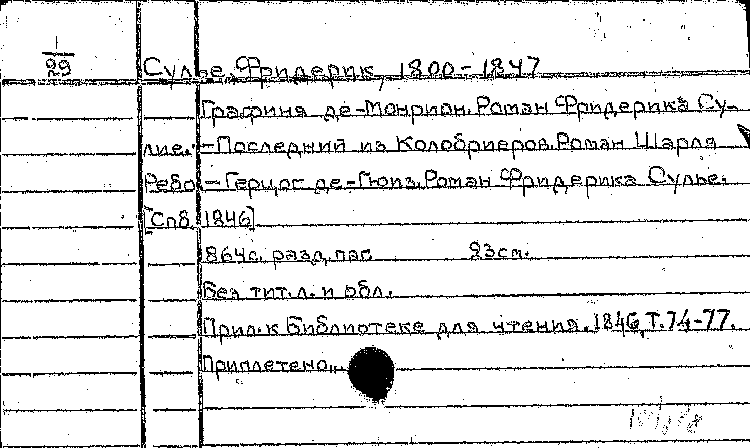 1
29
Сулье, Фридерик, 1800-1847
Графиня де-Монрион. Роман Фридерика Су-
лие.-Последний из Колобриеров. Роман Шарля
Ребо.-Герцог де-Гюиз. Роман Фридерика Сулье.
[Спб. 1846]
864с. разд. паг. 23см.
Без тит.л. и обл.
Прил. к Библиотеке для чтения. 1846, Т.74-77.
Приплетено